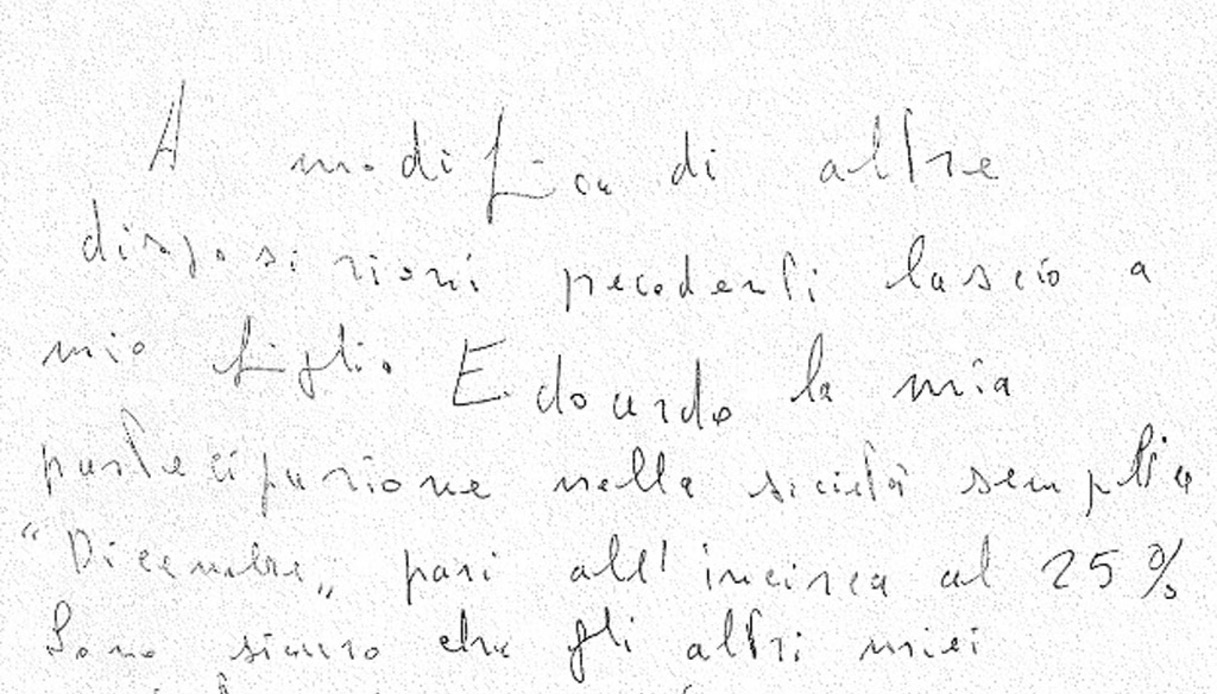 A modifica di altre
disposizioni precedenti lascio a
mio figlio Edoardo la mia
partecipazione nella società semplice
“Dicembre„ pari all'incirca al 25%
Sono sicuro che gli altri miei